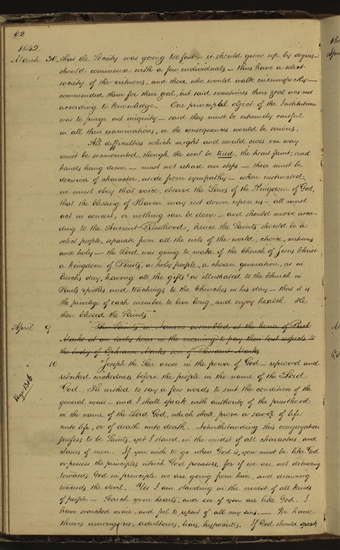 62
1842.
March 30, that the Society was going too fast — it should grow up by degrees
should commence with a few individuals — thus have a select
society of the virtuous, and those who would walk circumspectly —
commended them for their zeal, but said sometimes their zeal was not
according to knowledge. One principal object of the Institution
was to purge out iniquity — said they must be extremely careful
in all their examinations, or the consequences would be serious.
All difficulties which might and would cross our way
must be surmounted, though the soul be tried, the heart faint, and
hands hang down — must not retrace our steps — there must be
decision of character, aside from sympathy — when instructed,
we must obey that voice, observe the Laws of the Kingdom of God,
that the blessing of Heaven may rest down upon us — all must
act in concert, or nothing can be done — and should move accor-
ding to the Ancient Priesthood, hence the Saints should be a
select people, separate from all the evils of the world, choice, virtuous
and holy — the Lord was going to make of the Church of Jesus Christ
a kingdom of Priests, a holy people, a chosen generation, as in
Enoch's day, having all the gifts as illustrated to the Church in
Paul's epistles and teachings to the Churches in his day — that it is
the privilege of each member to live long, and enjoy health. He
then blessed the Saints.
April 9. The Saints in Nauvoo assembled at the house of Prest.
Marks at an early hour in the morning to pay their last respects to
the body of Ephraim Marks son of Prest. Marks
10. Joseph the Seer arose in the power of God — reproved and
rebuked wickedness before the people in the name of the Lord
God. He wished to say a few words to suit the condition of the
general mass — and I shall speak with authority of the priesthood
in the name of the Lord God, which shall prove a savor of life
unto life, or of death unto death. Notwithstanding this congregation
profess to be Saints, yet I stand in the midst of all characters and
classes of men. If you wish to go where God is, you must be like God
or possess the principles which God possesses, for if we are not drawing
towards God in principle we are going from him, and drawing
towards the devil. Yes I am standing in the midst of all kinds
of people — Search your hearts, and see if you are like God. I
have searched mine, and feel to repent of all my sins. — We have
thieves among us, adulterers, liars, hypocrites. If God should speak